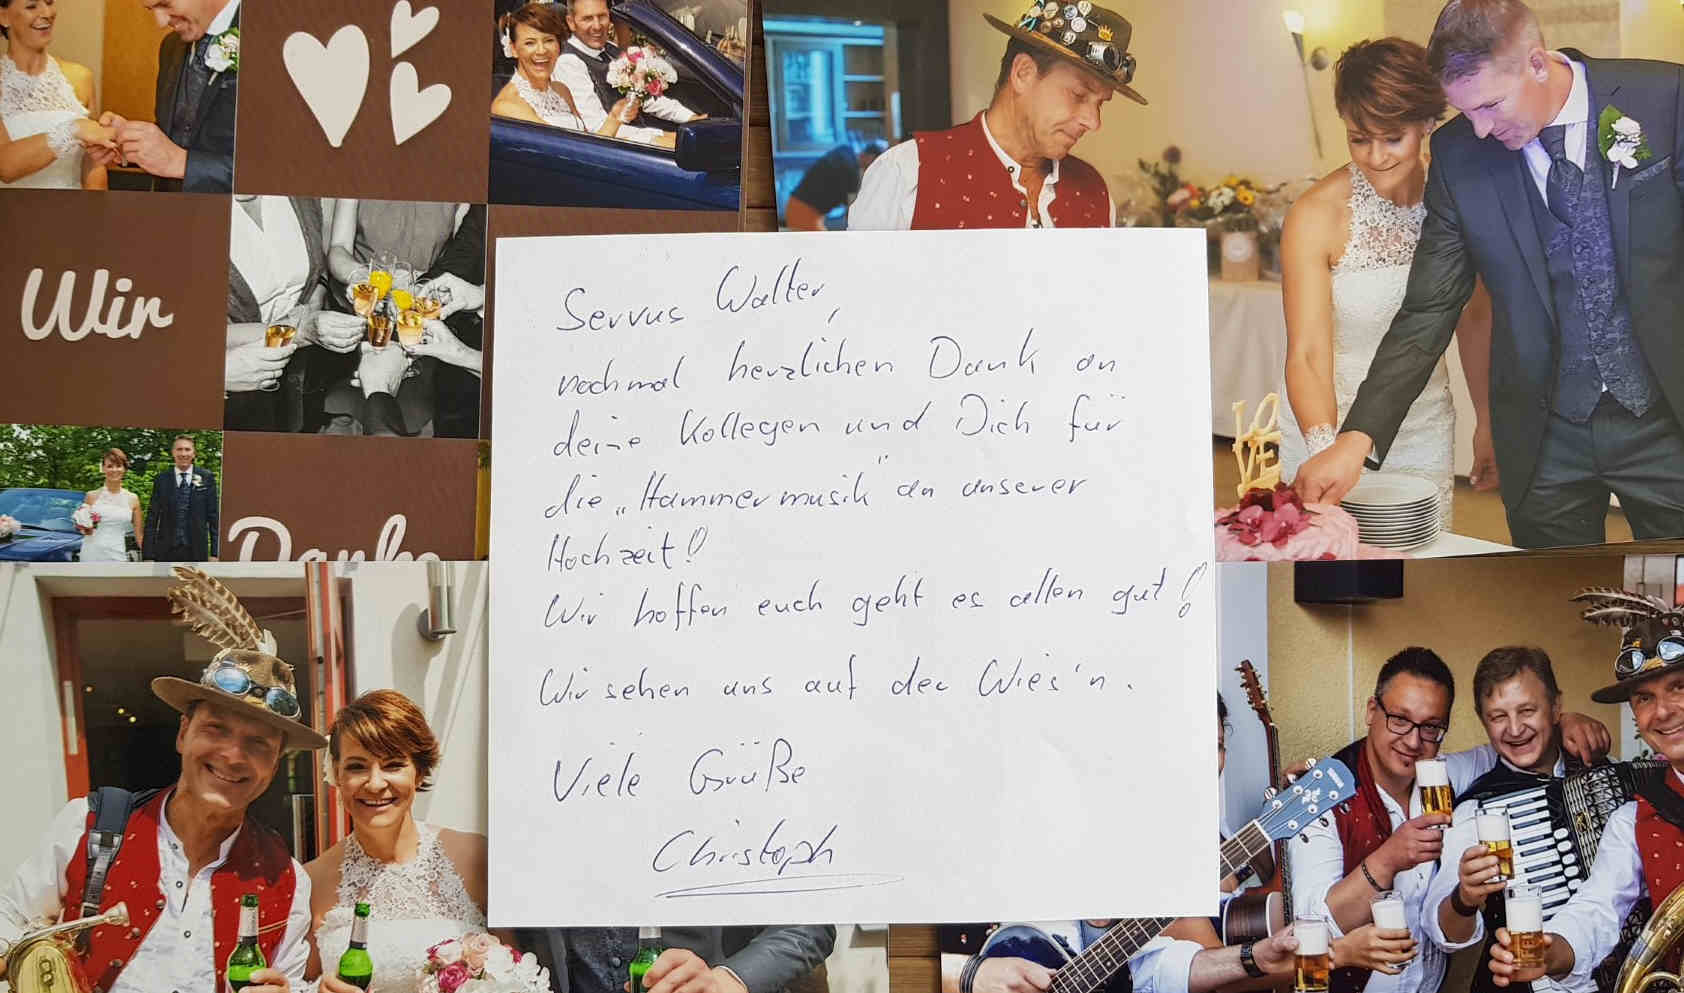 Wir
Danke
LOVE
Servus Walter,
nochmal herzlichen Dank an
deine Kollegen und Dich für
die „Hammermusik" an unserer
Hochzeit!
Wir hoffen euch geht es allen gut!
Wir sehen uns auf der Wies'n.
Viele Grüße
Christoph